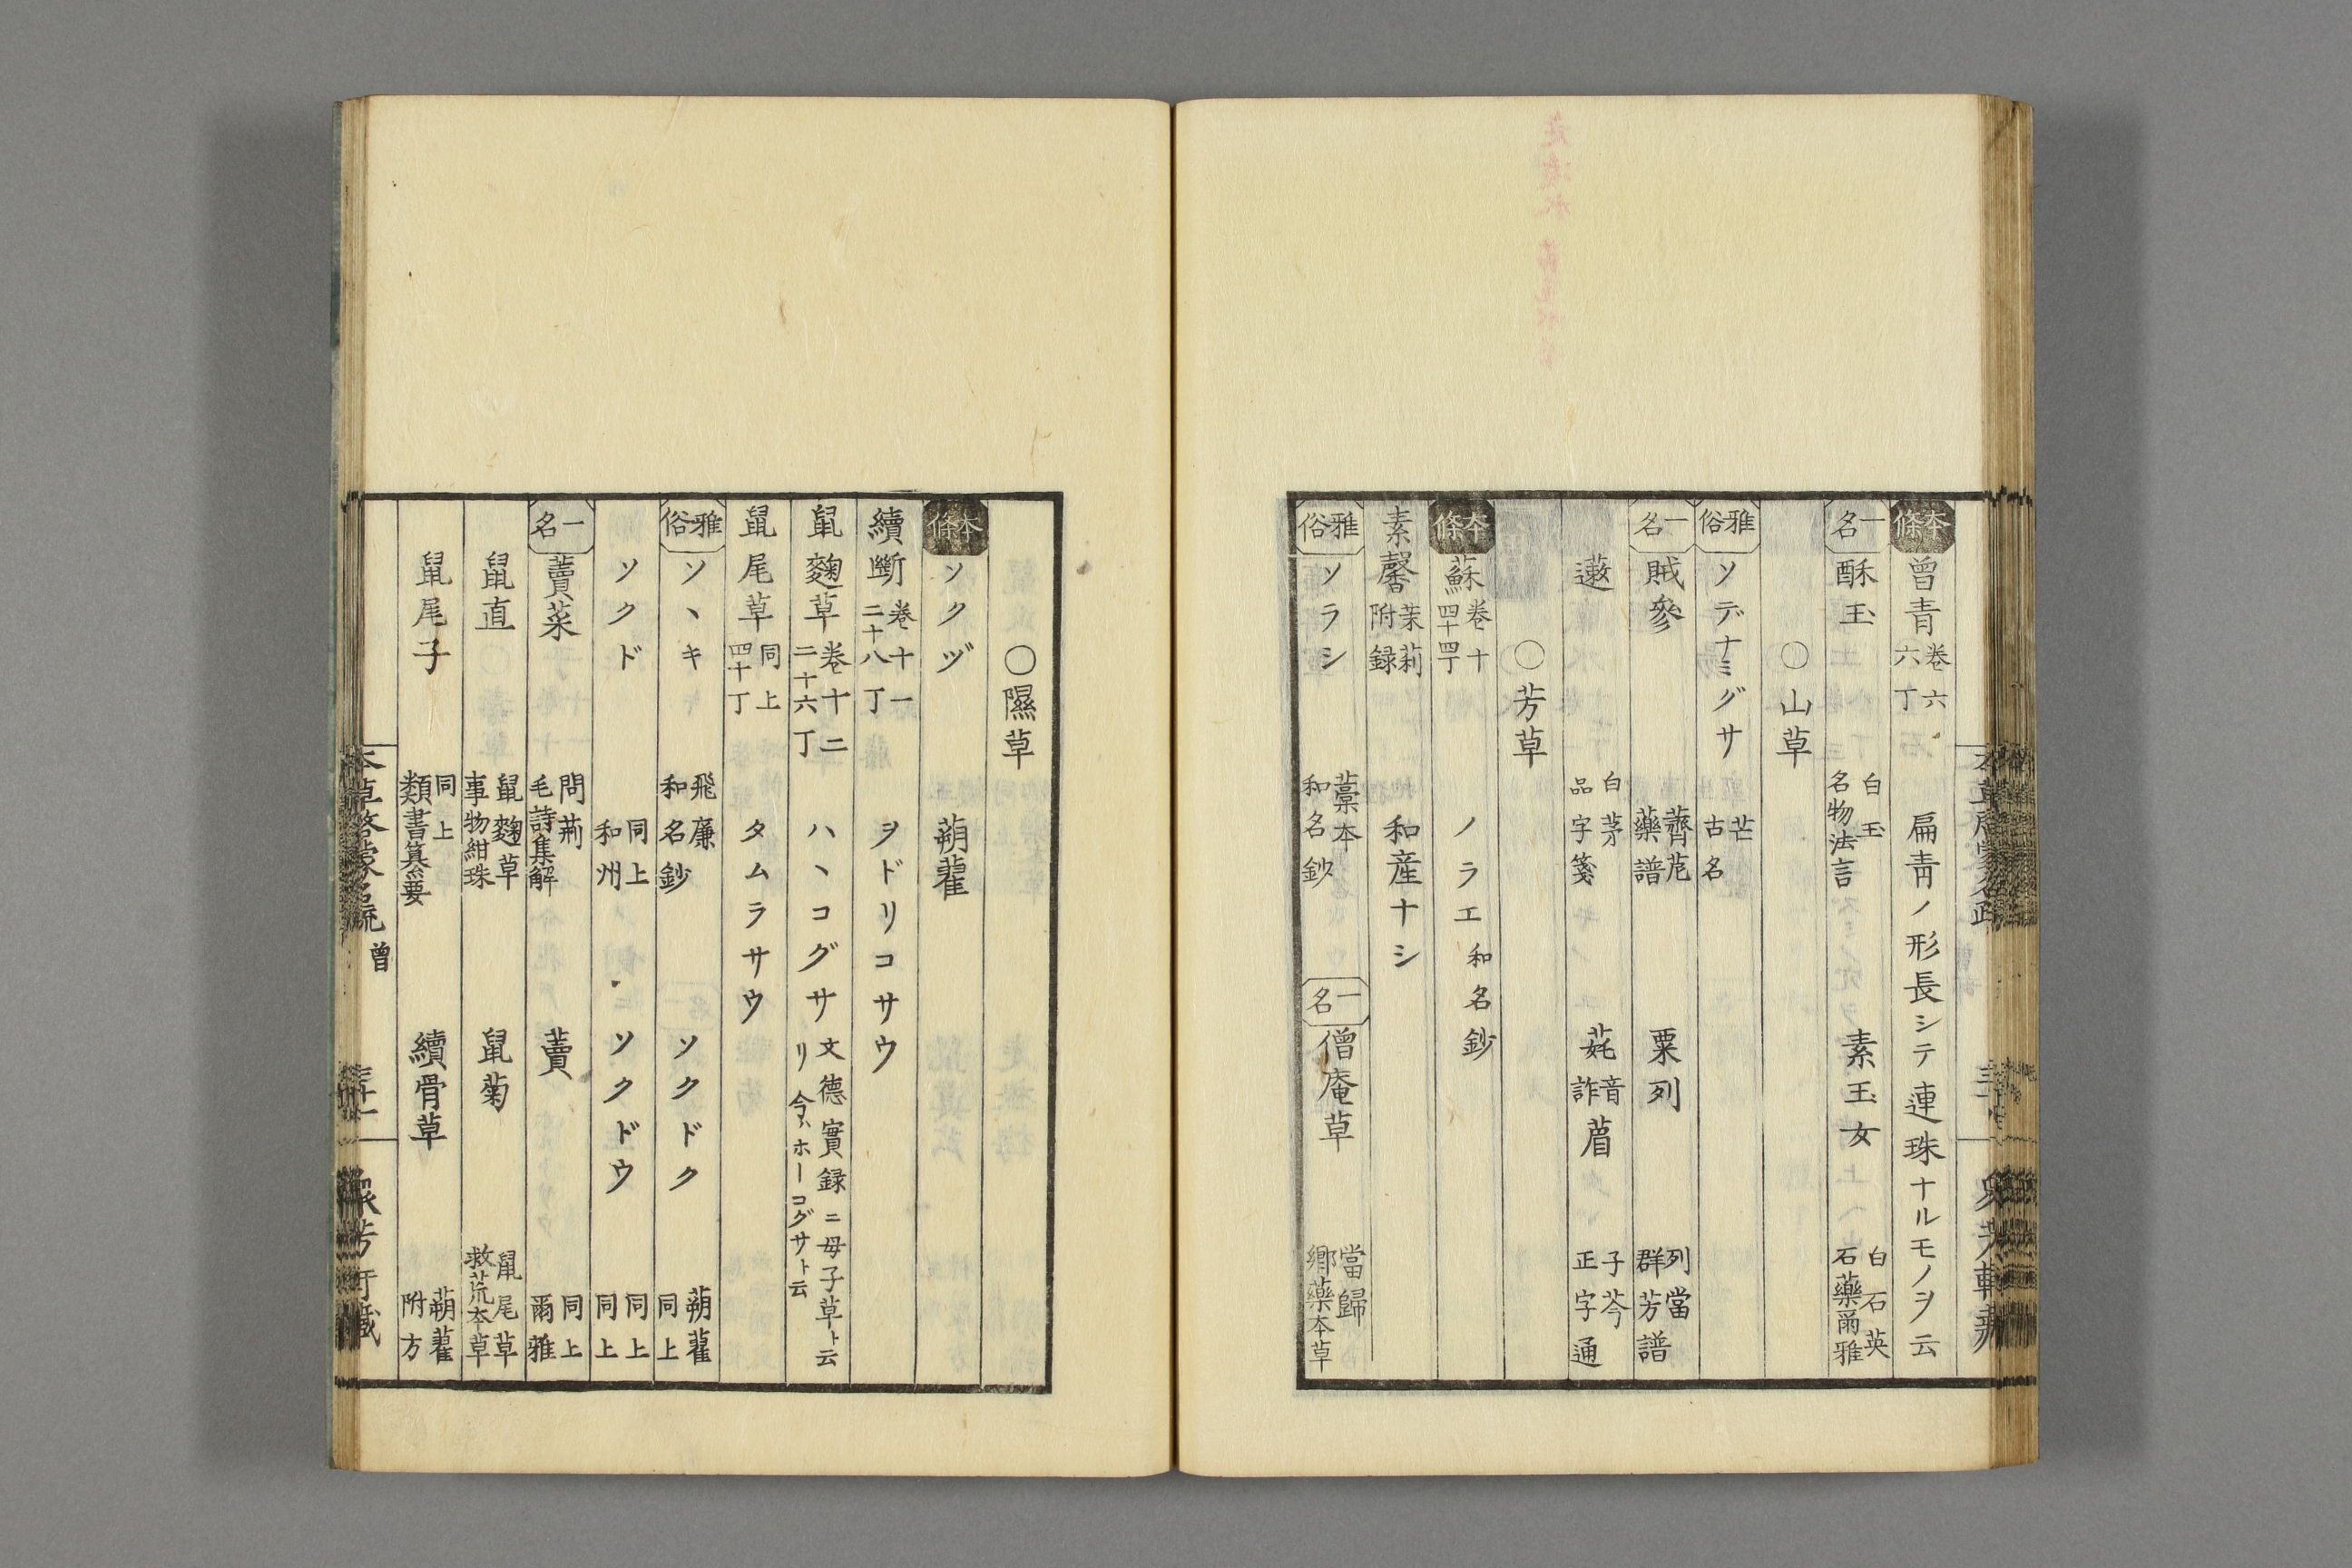 本條 曽青 卷六 六丁 扁青ノ形長シテ連珠ナルモノヲ云
一名 酥玉 白玉 名物法言 素玉女 白石英 石藥爾雅
〇山草
雅俗 ソデナミグサ 芒 古名
一名 賊參 薺苨 藥譜 粟列 列當 群芳譜
藗 白茅 品字箋 音詐 子芩 正字通
〇芳草
本條 蘇 卷十四 四十丁 ノラエ 和名鈔
素馨 茉莉附録 和産ナシ
雅俗 ソラシ 藁本 和名鈔 一名 僧庵草 當歸 鄉藥本草
〇隰草
本條 ソクヅ 蒴藋
續斷 卷十一 二十八丁 ヲドリコサウ
鼠麴草 卷十二 二十六丁 ハヽコグサ 文德實録ニ母子草ト云リ 今ハホーコグサト云
鼠尾草 同上 四十丁 タムラサウ
雅俗 ソヽキ 飛廉 和名鈔 ソクドク 蒴藋 同上
ソクド 同上 和州 ソクドウ 同上 同上
一名 藚菜 問荊 毛詩集解 藚 同上 爾雅
鼠直 鼠麴草 事物紺珠 鼠菊 鼠尾草 救荒本草
鼠尾子 同上 類書纂要 續骨草 蒴藋 附方
本草啓蒙名疏 曽 衆芳軒藏